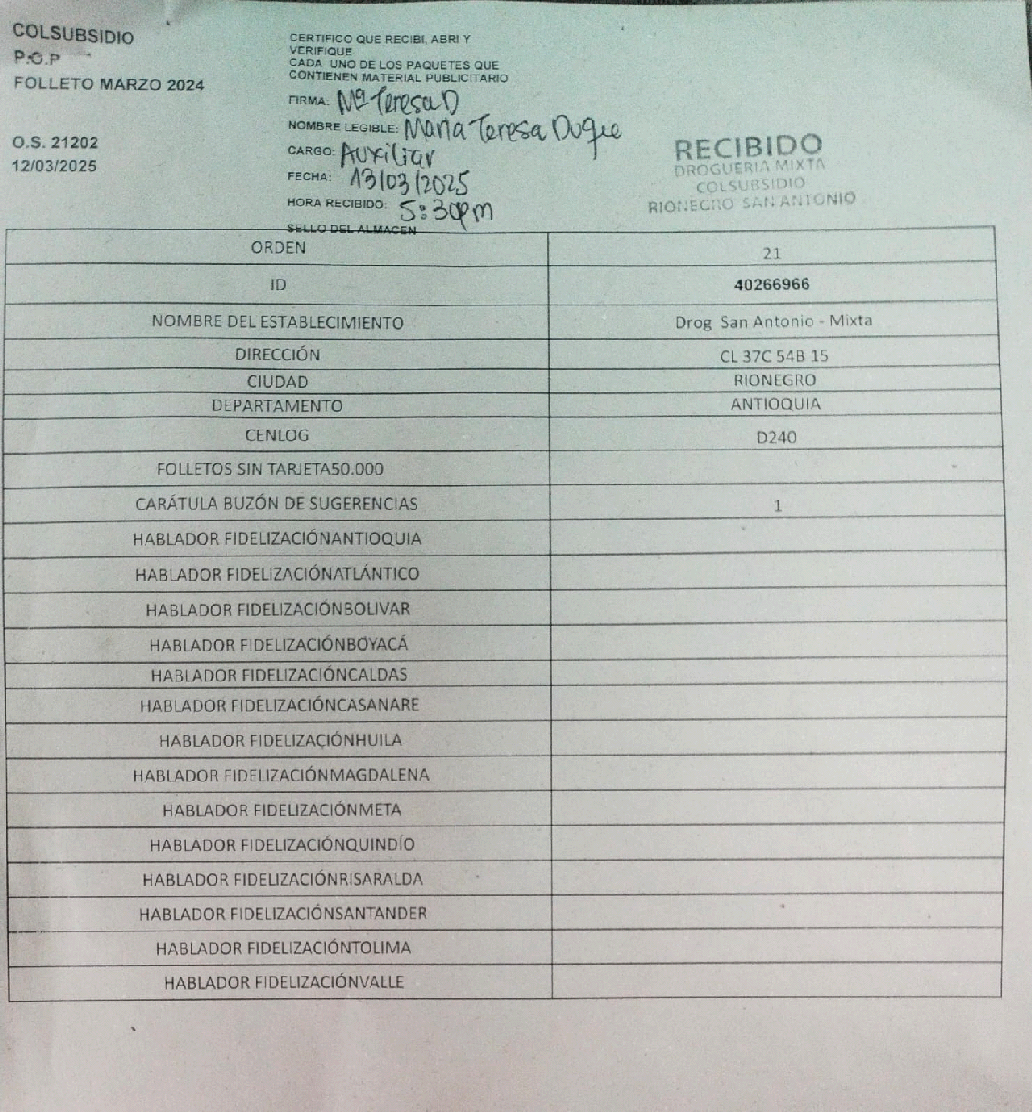 COLSUBSIDIO
P.O.P
FOLLETO MARZO 2024
O.S. 21202
12/03/2025
CERTIFICO QUE RECIBI, ABRI Y
VERIFIQUE
CADA UNO DE LOS PAQUETES QUE
CONTIENEN MATERIAL PUBLICITARIO
FIRMA: Mª Teresa D
NOMBRE LEGIBLE: Maria Teresa Duque
CARGO: Auxiliar
FECHA: 13/03/2025
HORA RECIBIDO: 5:30pm
SELLO DEL ALMACEN
RECIBIDO
DROGUERIA MIXTA
COLSUBSIDIO
RIONEGRO SAN ANTONIO
ORDEN 21
ID 40266966
NOMBRE DEL ESTABLECIMIENTO Drog San Antonio - Mixta
DIRECCIÓN CL 37C 54B 15
CIUDAD RIONEGRO
DEPARTAMENTO ANTIOQUIA
CENLOG D240
FOLLETOS SIN TARJETA50.000
CARÁTULA BUZÓN DE SUGERENCIAS 1
HABLADOR FIDELIZACIÓNANTIOQUIA
HABLADOR FIDELIZACIÓNATLÁNTICO
HABLADOR FIDELIZACIÓNBOLIVAR
HABLADOR FIDELIZACIÓNBOYACÁ
HABLADOR FIDELIZACIÓNCALDAS
HABLADOR FIDELIZACIÓNCASANARE
HABLADOR FIDELIZACIÓNHUILA
HABLADOR FIDELIZACIÓNMAGDALENA
HABLADOR FIDELIZACIÓNMETA
HABLADOR FIDELIZACIÓNQUINDÍO
HABLADOR FIDELIZACIÓNRISARALDA
HABLADOR FIDELIZACIÓNSANTANDER
HABLADOR FIDELIZACIÓNTOLIMA
HABLADOR FIDELIZACIÓNVALLE